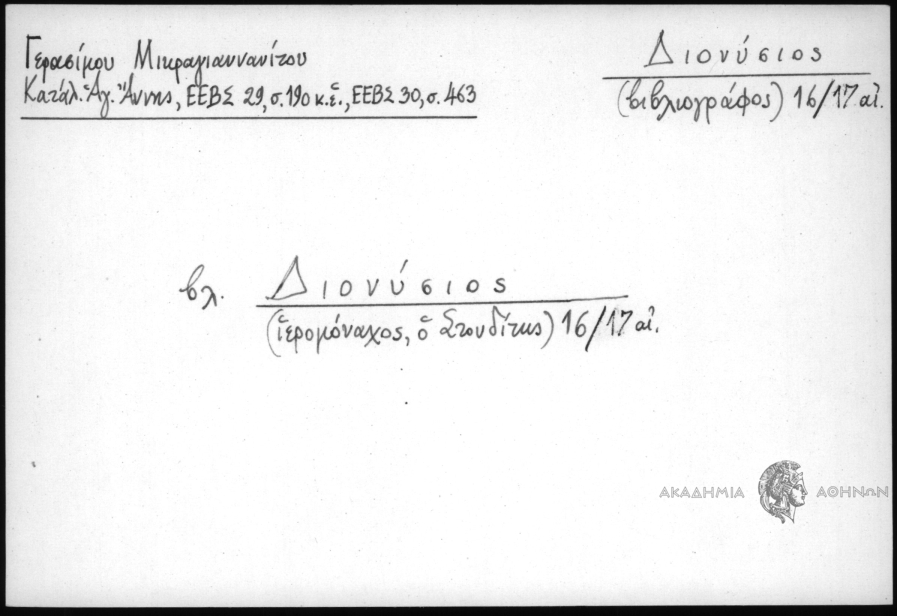 Γερασίμου Μικραγιαννανίτου
Κατάλ. Ἁγ. Ἄννης, ΕΕΒΣ 29, σ. 190 κ.ἑ., ΕΕΒΣ 30, σ. 463
Διονύσιος
(βιβλιογράφος) 16/17 αἰ.
βλ. Διονύσιος
(ἱερομόναχος, ὁ Στουδίτης) 16/17 αἰ.
ΑΚΑΔΗΜΙΑ ΑΘΗΝΩΝ